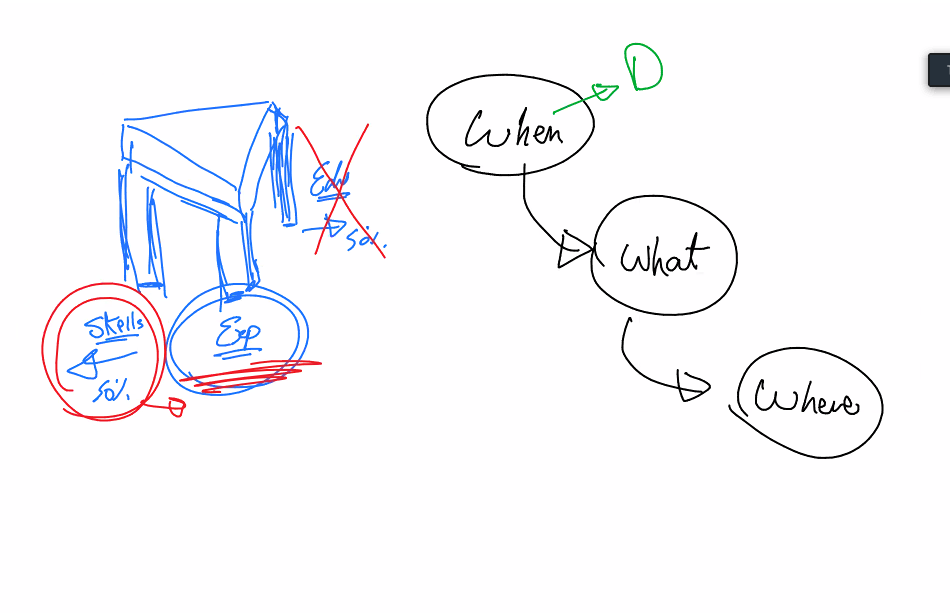 Edu
50%
Skills
50%
Exp
When
D
What
Where